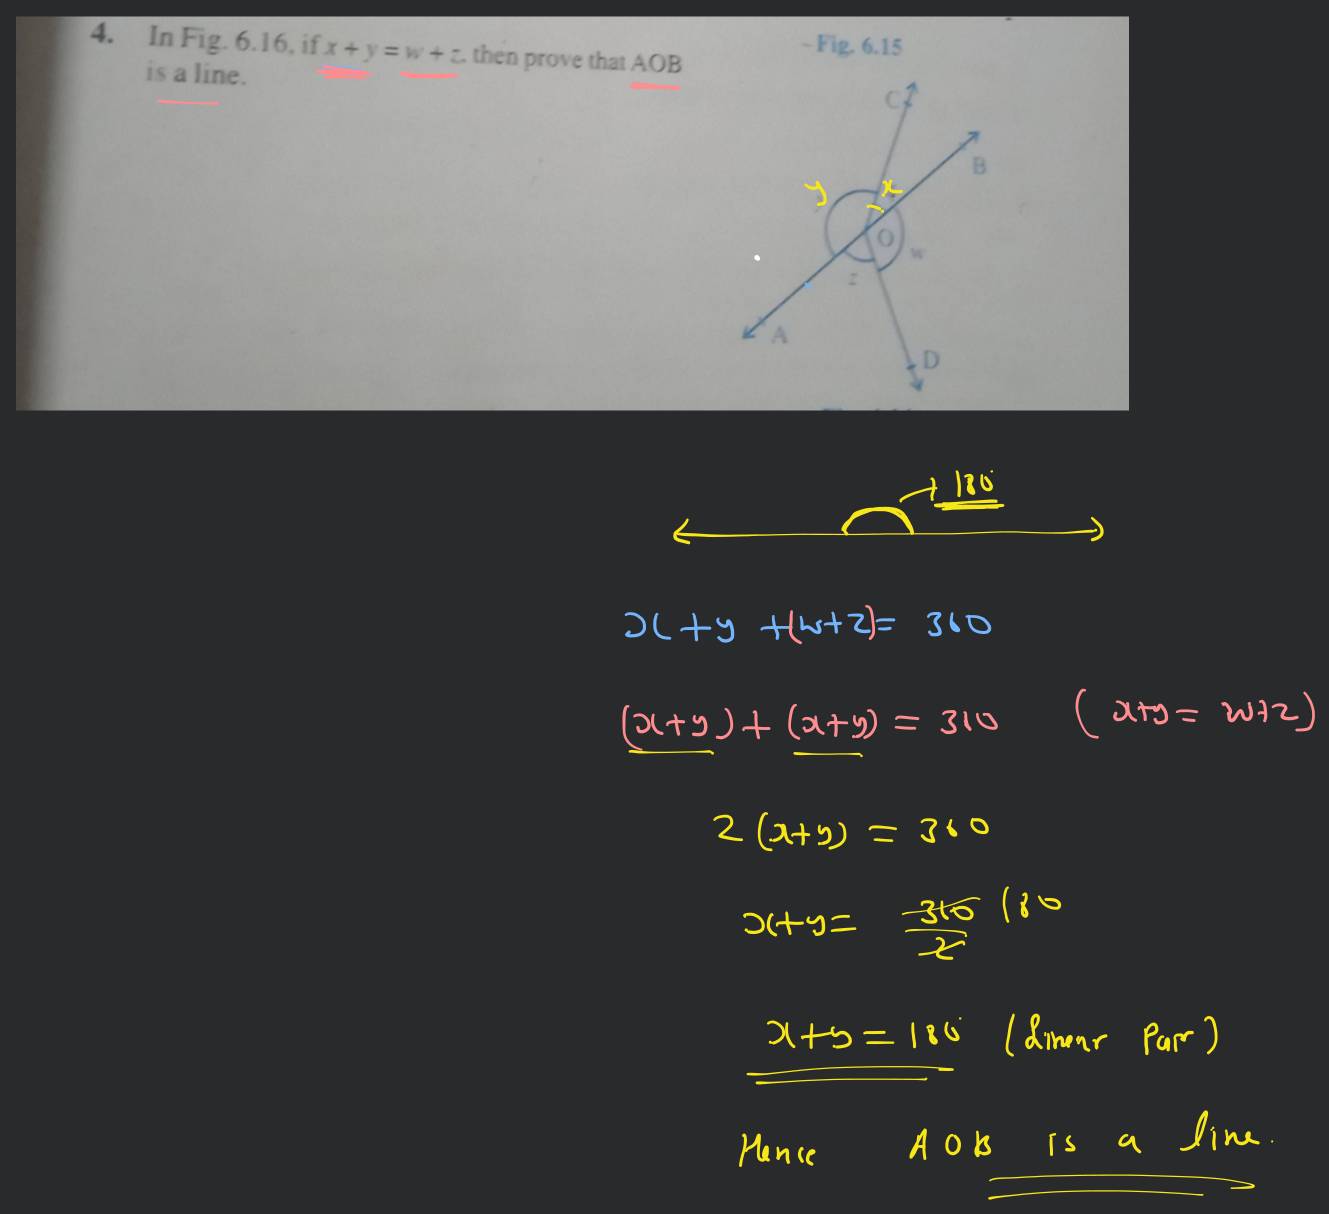 4. In Fig. 6.16, if x + y = w + z, then prove that AOB
is a line.
Fig. 6.15
C
B
y
x
O
w
z
A
D
180°
x+y +(w+z)= 360
(x+y)+(x+y) = 360 (x+y= w+z)
2(x+y) = 360
x+y= 360/2 180
x+y=180° (Linear Pair)
Hence AOB is a line.